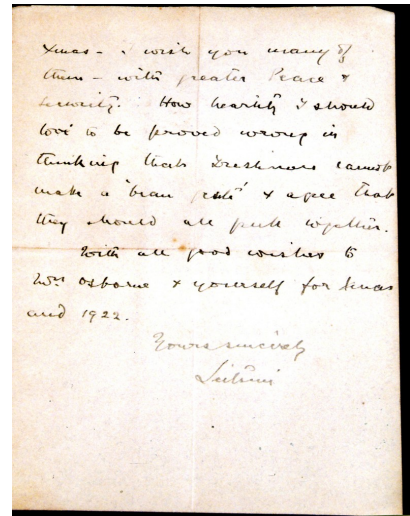 Xmas - I wish you many of
them - with greater Peace &
security. How heartily I should
love to be proved wrong in
thinking that Irishmen cannot
make a 'bean & agree that
they should all pull together.
With all good wishes to
Mrs Osborne & yourself for Xmas
and 1922.
Yours sincerely